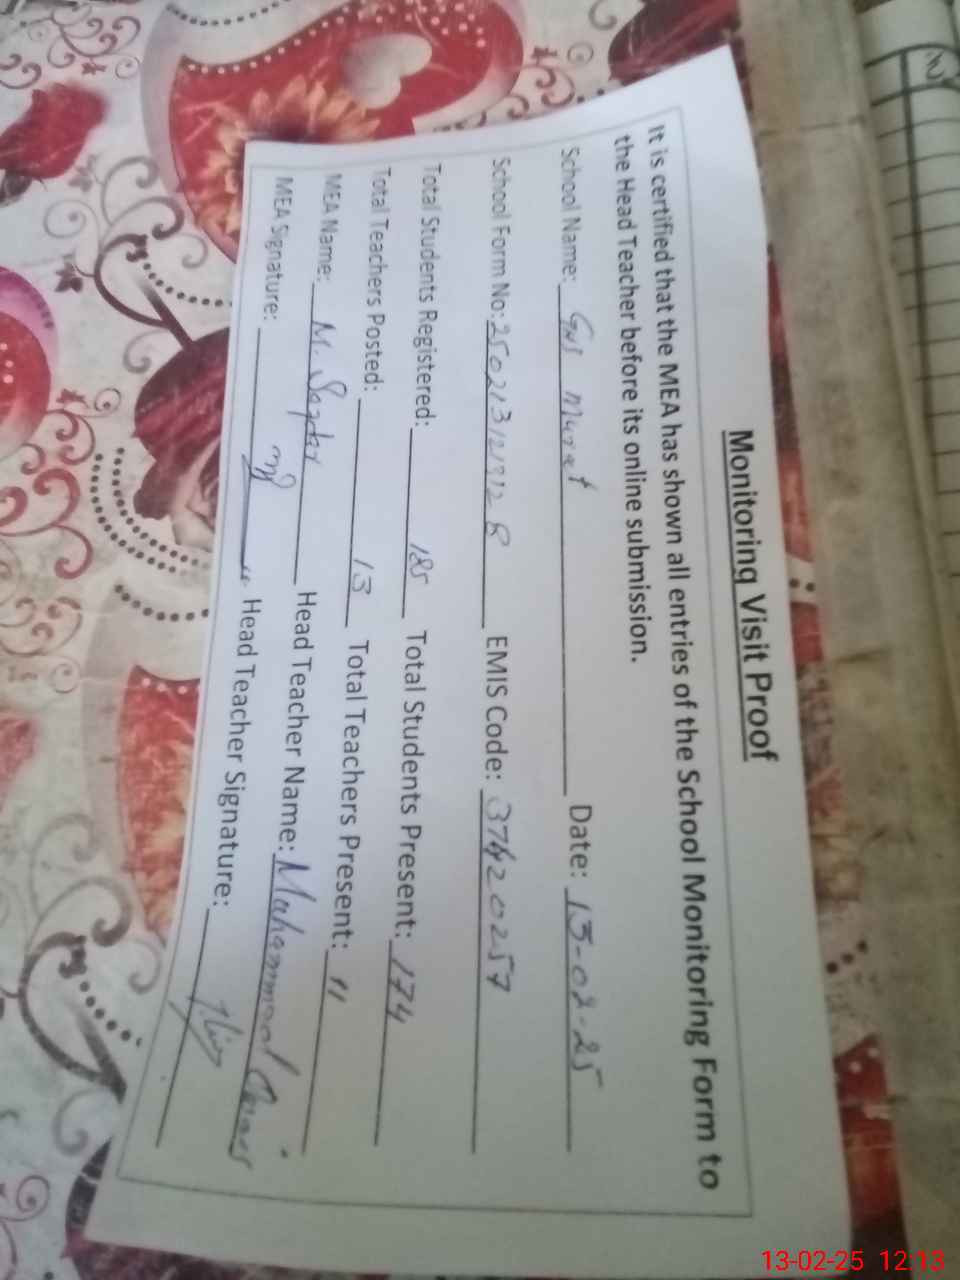 Monitoring Visit Proof
It is certified that the MEA has shown all entries of the School Monitoring Form to
the Head Teacher before its online submission.
School Name: Date: 13-02-25
School Form No: EMIS Code: 37420257
Total Students Registered: 185 Total Students Present: 174
Total Teachers Posted: 13 Total Teachers Present: 11
MEA Name: M. Head Teacher Name: Muhammad
MEA Signature: Head Teacher Signature:
13-02-25 12:13